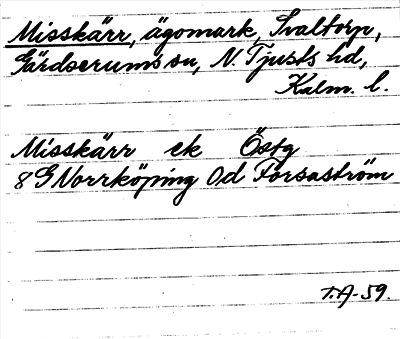 Misskärr, ägomark, Svaltorp,
Gärdserums sn, N. Tjusts hd,
Kalm. l.
Misskärr ek Östg
8 G Norrköping 0d Forsaström
T.A-59.